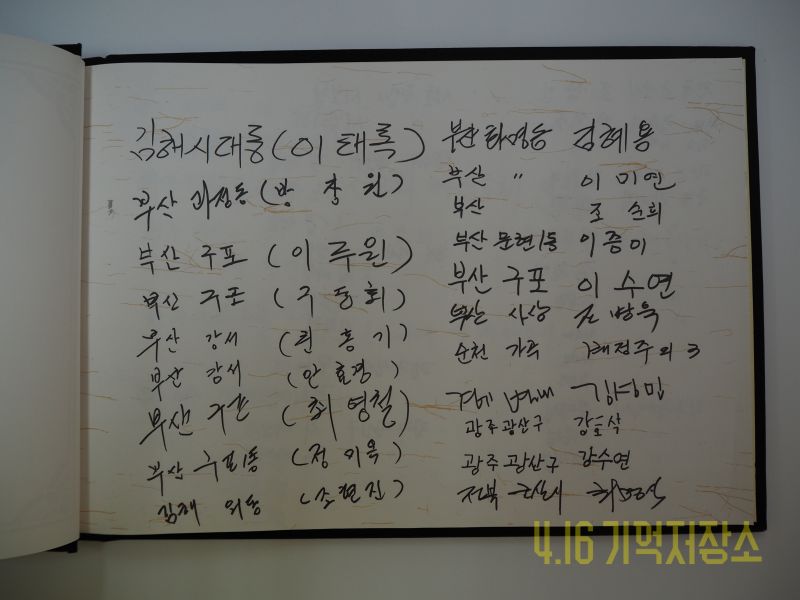 김해시 대동 (이태록)
부산 괴정동 (방창원)
부산 구포 (이루원)
부산 구포 (구동회)
부산 강서 (권홍기)
부산 강서 (안효경)
부산 구포 (최영철)
부산 구포1동 (정이옥)
김해 외동 (조현진)
부산 화명동 김혜용
부산 〃 이미연
부산 조순희
부산 문현1동 이증미
부산 구포 이수연
부산 사상 김방욱
순천 가족 정주외 3
광주 광산구 강효삭
광주 광산구 강수연
전북
4.16 기억저장소